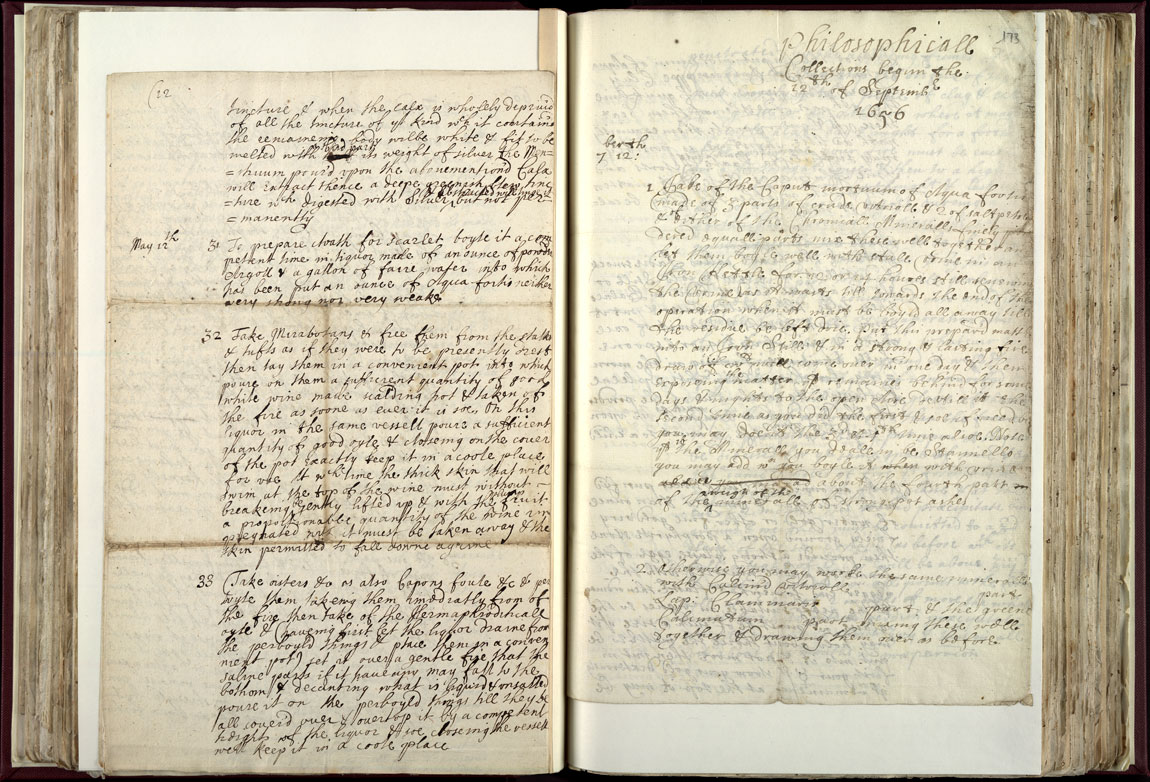 (12
tincture & when the calx is wholely deprived
of all the tincture of yt kind wch it contained
the remaineing body wilbe white & fit to be
melted with third part its weight of silver The Men=
=struum pourd upon the abovementiond Calx
will extract thence a deepe greenish tinc
=ture wch digested with Silver but not per=
=manently
May 12th
31 To prepare cloath for scarlet boyle it a com
petent time in liquor made of an ounce of powdred
Argod & a gallon of faire water into which
has been put an ounce of Aqua fortis neither
very strong nor very weake
32 Take Mirabolans & free them from the stalks
& tufts as if they were to be presently
then lay them in a convenient pot into which
poure on them a sufficient quantity of good
white wine made scalding hot & taken of
the fire as soone as ever it is soe, On this
liquor in the same vessell poure a sufficient
quantity of good oyle & closeing on the cover
of the pot exactly keep it in a coole place
for use at wch time the thick skin that will
swim at the top of the wine must without
breakeing gently lifted up & with the fruit
a proportionable quantity of the wine im
pregnated wth it must be taken away & the
skin permitted to fall downe againe
33 Take oisters &c as also Capons foule &c & per
boyle them takeing them imediatly from of
the fire then take of the Hermaphroditicall
oyle & haveing first let the liquor draine from
the perboyld things & place them in a conven
nient pot) set it over a gentle fire that the
saline parts if it have any may fall to the
bothom & decanting what is liquid & unsalted
poure it on the perboyld things till they be
all coverd over & overtop it by a competent
hight of the liquor & soe closeing the vessell
well keep it in a coole place
173
Philosophicall
Collections begun the
12th of Septembr
1656
7 ber th 12:
1 Take of the Caput mortuum of Aqua fortis
(made of 3 parts of crude vitrioll & 2 of saltpeter
& either of the Minerall finely
dered equall parts mix these well together
let them boyle well with stale Urine in an
Iron Kettle for or howers still renewing
the Urine as it wasts till towards the end of the
operation when it must be boyld all away till
the residue be left drie. Put this prepard mass
into an Iron Still & in a strong & lasting fire
over in one day & then
exposing the matter yt remaines behind for some
days & nights to the open aire destill it the
second time as you did the first & soe if need
you may doe it the 3d or 4th time alsoe. Note
if the Minerall you deale in be
you may add when you boyle it with Urine
about the fourth part
of the weight of the minerall of strong pot ashes
2 Otherwise you may worke the same minerall
with Calcind vitrioll part
Lap: Calaminaris part, & the greene
part mixing these well
together & drawing them over as before